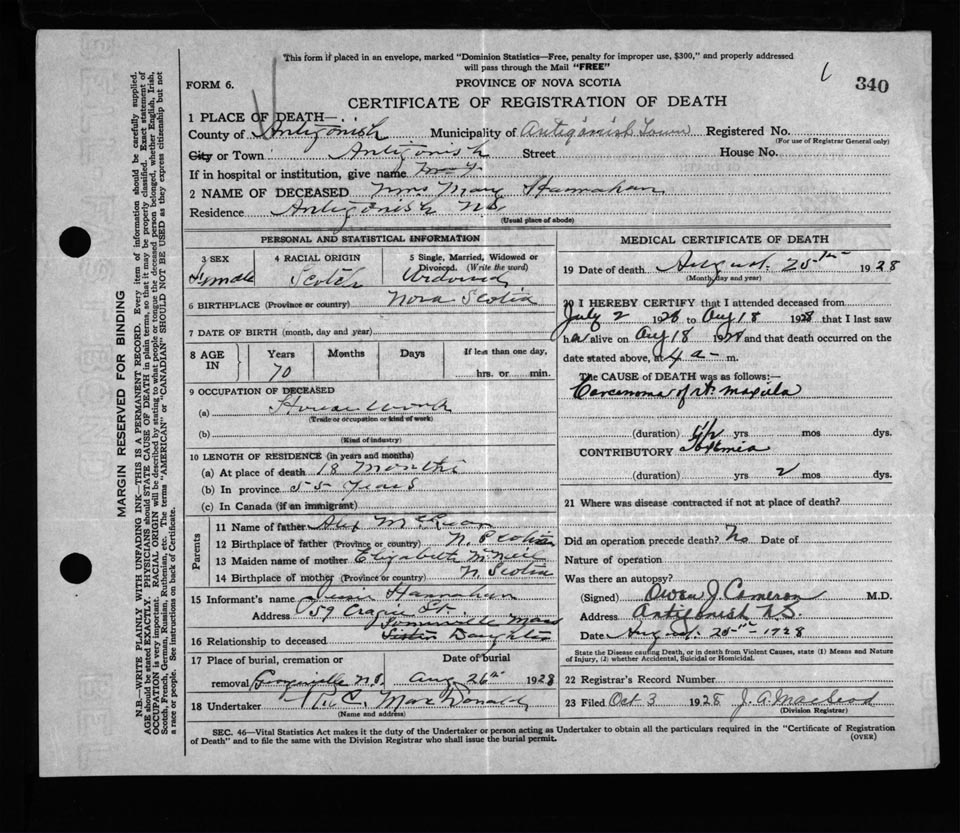 This form if placed in an envelope, marked "Dominion Statistics—Free, penalty for improper use, $300," and properly addressed
will pass through the Mail "FREE"
FORM 6.
PROVINCE OF NOVA SCOTIA
340
CERTIFICATE OF REGISTRATION OF DEATH
1 PLACE OF DEATH—
County of Antigonish Municipality of Antigonish Town Registered No.
(For use of Registrar General only)
City or Town Antigonish Street House No.
If in hospital or institution, give name
2 NAME OF DECEASED Mrs Mary Hannahan
Residence Antigonish N.S
(Usual place of abode)
PERSONAL AND STATISTICAL INFORMATION
3 SEX 4 RACIAL ORIGIN 5 Single, Married, Widowed or
Divorced. (Write the word)
Female Scotch Widowed
6 BIRTHPLACE (Province or country) Nova Scotia
7 DATE OF BIRTH (month, day and year)
8 AGE IN Years Months Days If less than one day,
70 hrs. or min.
9 OCCUPATION OF DECEASED
(a) House Work
(Trade or occupation or kind of work)
(b)
(Kind of industry)
10 LENGTH OF RESIDENCE (in years and months)
(a) At place of death 18 Months
(b) In province 55 Years
(c) In Canada (if an immigrant)
Parents
11 Name of father Alex
12 Birthplace of father (Province or country) N. Scotia
13 Maiden name of mother Elizabeth McNeil
14 Birthplace of mother (Province or country) N. Scotia
15 Informant's name Hannahan
Address 59 St.
Somerville Mass
16 Relationship to deceased Sister Daughter
17 Place of burial, cremation or Date of burial
removal N.S. Aug 26th 1928
18 Undertaker MacDonald
(Name and address)
MEDICAL CERTIFICATE OF DEATH
19 Date of death August 25th 1928
(Month, day and year)
20 I HEREBY CERTIFY that I attended deceased from
July 2 192 to Aug 18 1928 that I last saw
her alive on Aug 18 1928 and that death occurred on the
date stated above, at 4 a- m.
The CAUSE of DEATH was as follows:—
Carcenoma of rt. maxila
(duration) 1½ yrs mos dys.
CONTRIBUTORY Toxemia
(duration) yrs 2 mos dys.
21 Where was disease contracted if not at place of death?
Did an operation precede death? No Date of
Nature of operation
Was there an autopsy?
(Signed) Owen J. Cameron M.D.
Address Antigonish N.S.
Date August 25th 1928
State the Disease causing Death, or in death from Violent Causes, state (1) Means and Nature
of Injury, (2) whether Accidental, Suicidal or Homicidal.
22 Registrar's Record Number
23 Filed Oct 3 1928 J. A. MacLeod
(Division Registrar)
SEC. 46—Vital Statistics Act makes it the duty of the Undertaker or person acting as Undertaker to obtain all the particulars required in the "Certificate of Registration
of Death" and to file the same with the Division Registrar who shall issue the burial permit.
(OVER)
MARGIN RESERVED FOR BINDING
N.B.—WRITE PLAINLY WITH UNFADING INK—THIS IS A PERMANENT RECORD. Every item of information should be carefully supplied.
AGE should be stated EXACTLY. PHYSICIANS should STATE CAUSE OF DEATH in plain terms, so that it may be properly classified. Exact statement of
OCCUPATION is very important. RACIAL ORIGIN will be described by stating to what people or tongue the deceased person belonged, whether English, Irish,
Scotch, French, German, Russian, Ruthenian, etc. The terms "AMERICAN" or "CANADIAN" SHOULD NOT BE USED as they express citizenship but not
a race or people. See instructions on back of Certificate.